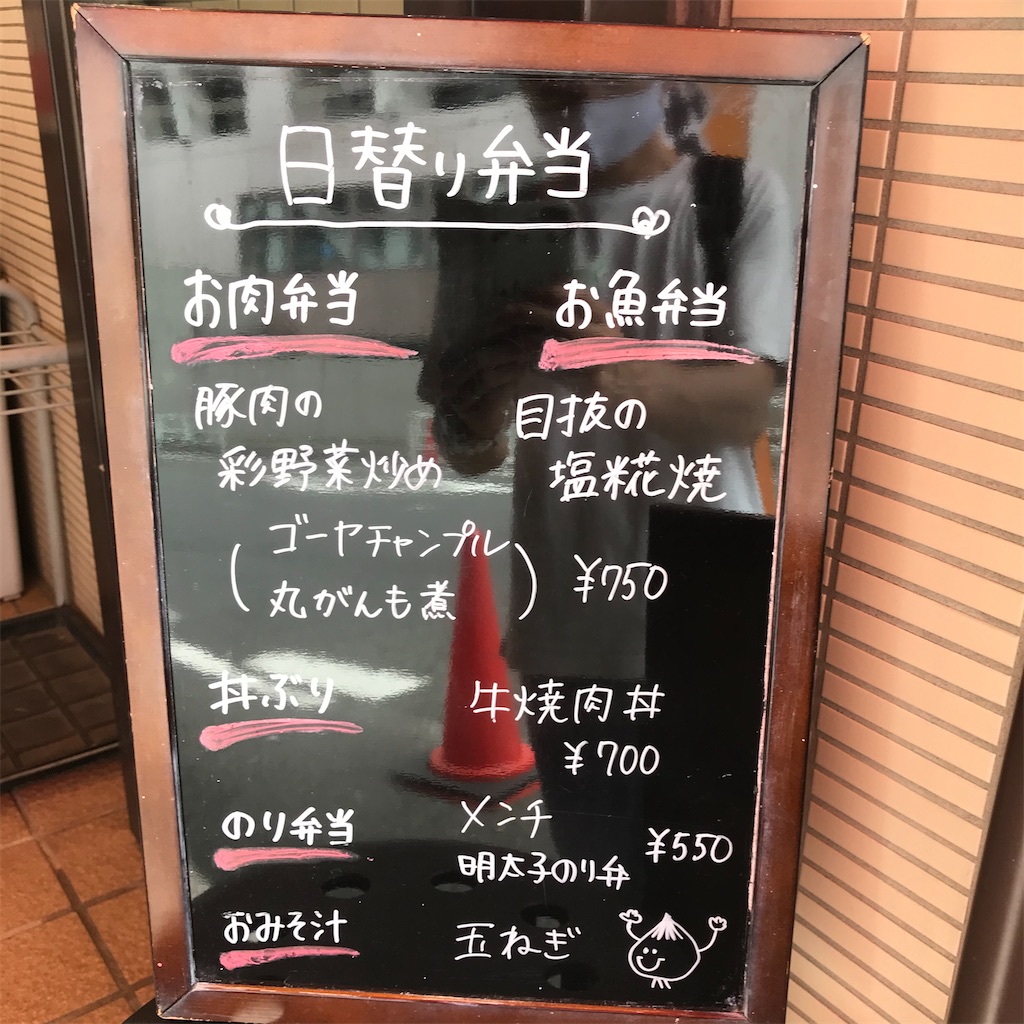 日替り弁当
お肉弁当
豚肉の
彩野菜炒め
お魚弁当
目抜の
塩糀焼
(ゴーヤチャンプル
丸がんも煮)
¥750
丼ぶり
牛焼肉丼
¥700
のり弁当
メンチ
明太子のり弁
¥550
おみそ汁
玉ねぎ